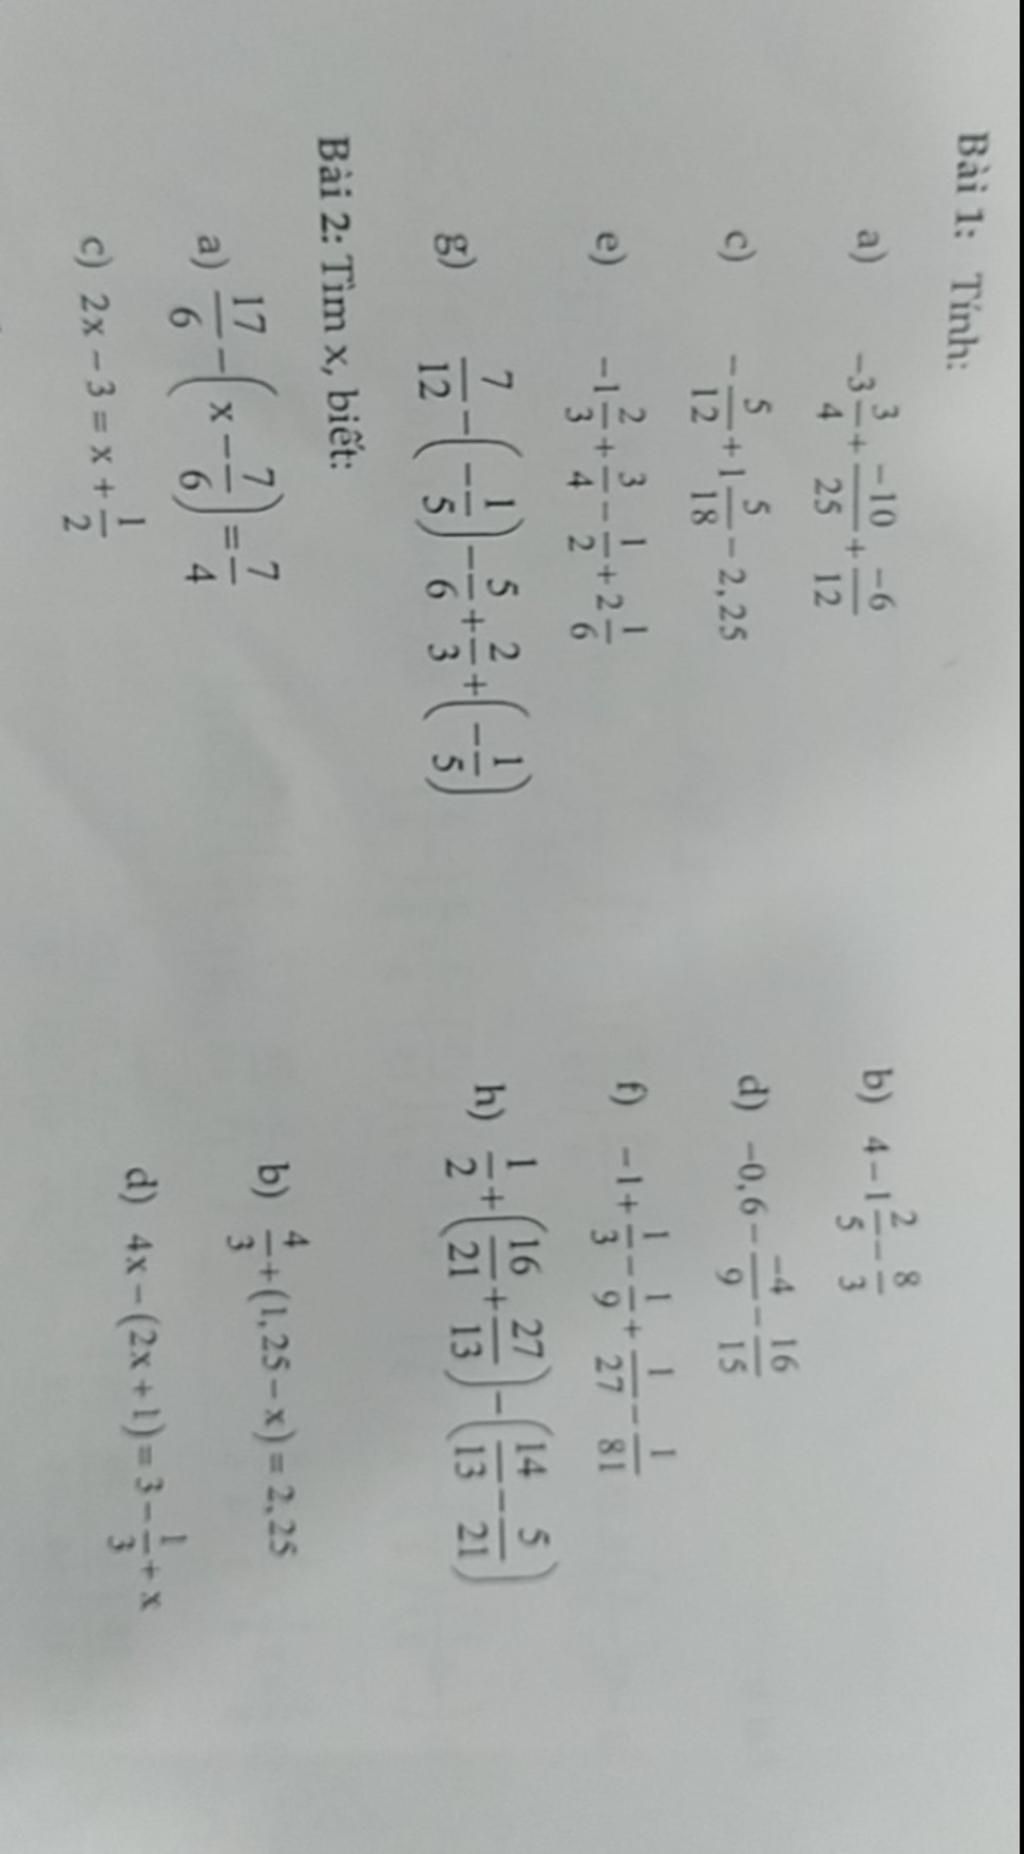 Bài 1: Tính:
a) -3 3/4 + -10/25 + -6/12
b) 4 - 1 2/5 - 8/3
c) - 5/12 + 1 5/18 - 2,25
d) -0,6 - -4/9 - 16/15
e) -1 2/3 + 3/4 - 1/2 + 2 1/6
f) -1 + 1/3 - 1/9 + 1/27 - 1/81
g) 7/12 - (- 1/5) - 5/6 + 2/3 + (- 1/5)
h) 1/2 + (16/21 + 27/13) - (14/13 - 5/21)
Bài 2: Tìm x, biết:
a) 17/6 - (x - 7/6) = 7/4
b) 4/3 + (1,25 - x) = 2,25
c) 2x - 3 = x + 1/2
d) 4x - (2x + 1) = 3 - 1/3 + x